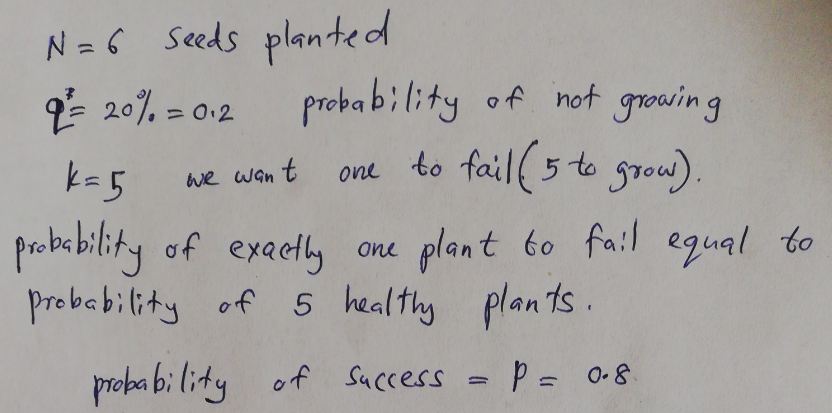 N = 6 seeds planted
q = 20% = 0.2 probability of not growing
k = 5 we want one to fail (5 to grow).
probability of exactly one plant to fail equal to
probability of 5 healthy plants.
probability of success = p = 0.8